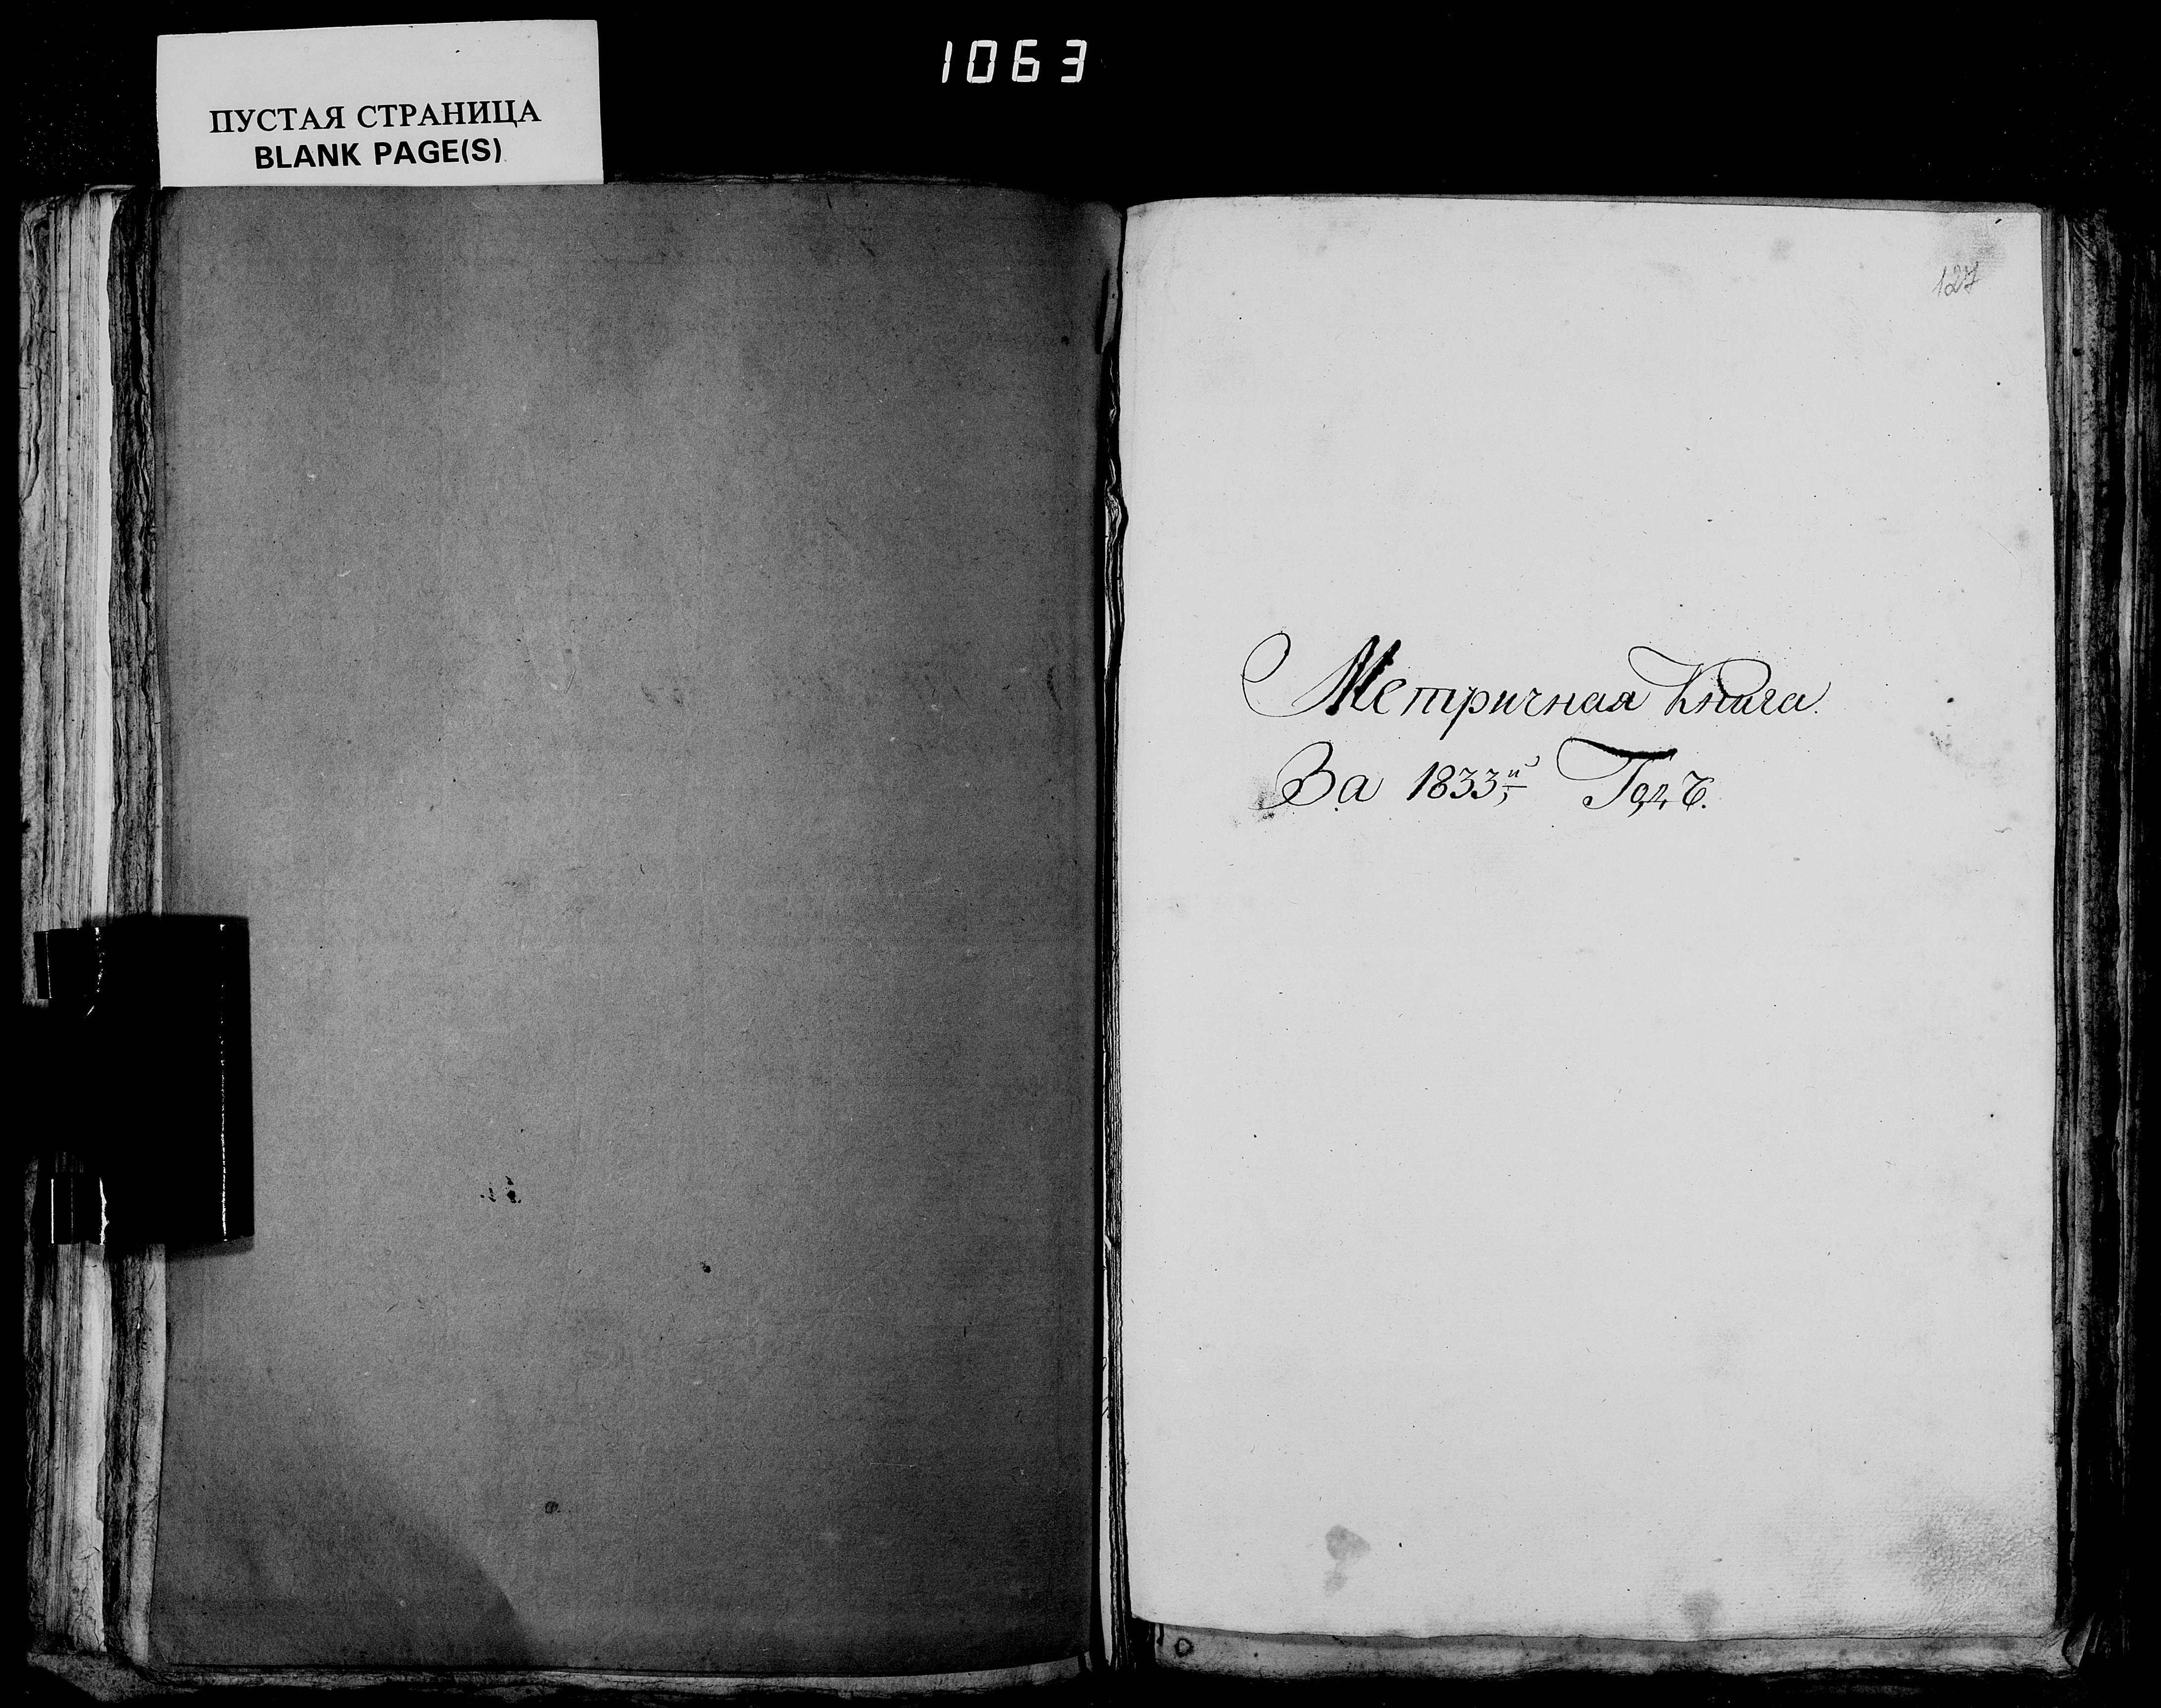 1063
ПУСТАЯ СТРАНИЦА
BLANK PAGE(S)
127
Метричная Книга.
За 1833й Годъ.